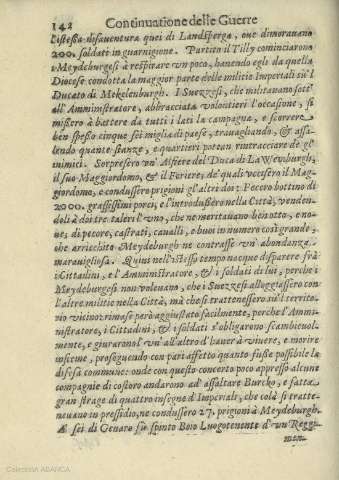 142 Continuatione delle Guerre
l'istessa disauentura quei di Landsperga, oue dimorauano
200. soldati in guarnigione. Partito il Tilly cominciarono
i Meydeburgesi à respirare vn poco, hauendo egli da quella
Diocese condotta la maggior parte delle militie Imperiali sù'l
Ducato di Mekelenburgh. I Suezzesi, che militauano sott'
all'Amministratore, abbracciata volontieri l'occasione, si
missero à battere da tutti i lati la campagna, e scorrere
ben spesso cinque sei miglia di paese, trauagliando, & assa-
lendo quante stanze, e quartieri potean rintracciare de gl'
inimici. Sorpresero vn' Alfiere del Duca di Lawenburgh,
il suo Maggiordomo, & il Foriere, de' quali vccisero il Mag-
giordomo, e condussero prigioni gl'altri doi: Fecero bottino di
2000. grassissimi porci, e l'introdussero nella Città, venden-
doli à doi tre taleri l'vno, che ne meritauano ben otto, e no-
ue; di pecore, castrati, caualli, e buoi in numero così grande,
che arricchito Meydeburgh ne contrasse vn'abondanza
marauigliosa. Quini nell'istesso tempo nacque disparere frà
i Cittadini, e l'Amministratore, & i soldati di lui, perche i
Meydeburgesi non voleuano, che i Suezzesi alloggiassero con
l'altre militie nella Città, mà che si trattenessero sù'l territo-
rio vicino: rimase però aggiustato facilmente, perche l'Ammi-
nistratore, i Cittadini, & i soldati s'obligarono scambieuol-
mente, e giurarono l'vn'all'altro d'hauer à viuere, e morire
insieme, proseguendo con pari affetto quanto fusse possibile la
difesa commune: onde con questo concerto poco appresso alcune
compagnie di costoro andarono ad assaltare Burcko, e fatta
gran strage di quattro insegne d'Imperiali, che colà si tratte-
neuano in pressidio, ne condussero 27. prigioni à Meydeburgh.
A sei di Genaro fù spinto Boio Luogotenente d'vn Reggi-
men-
Colección ABANCA